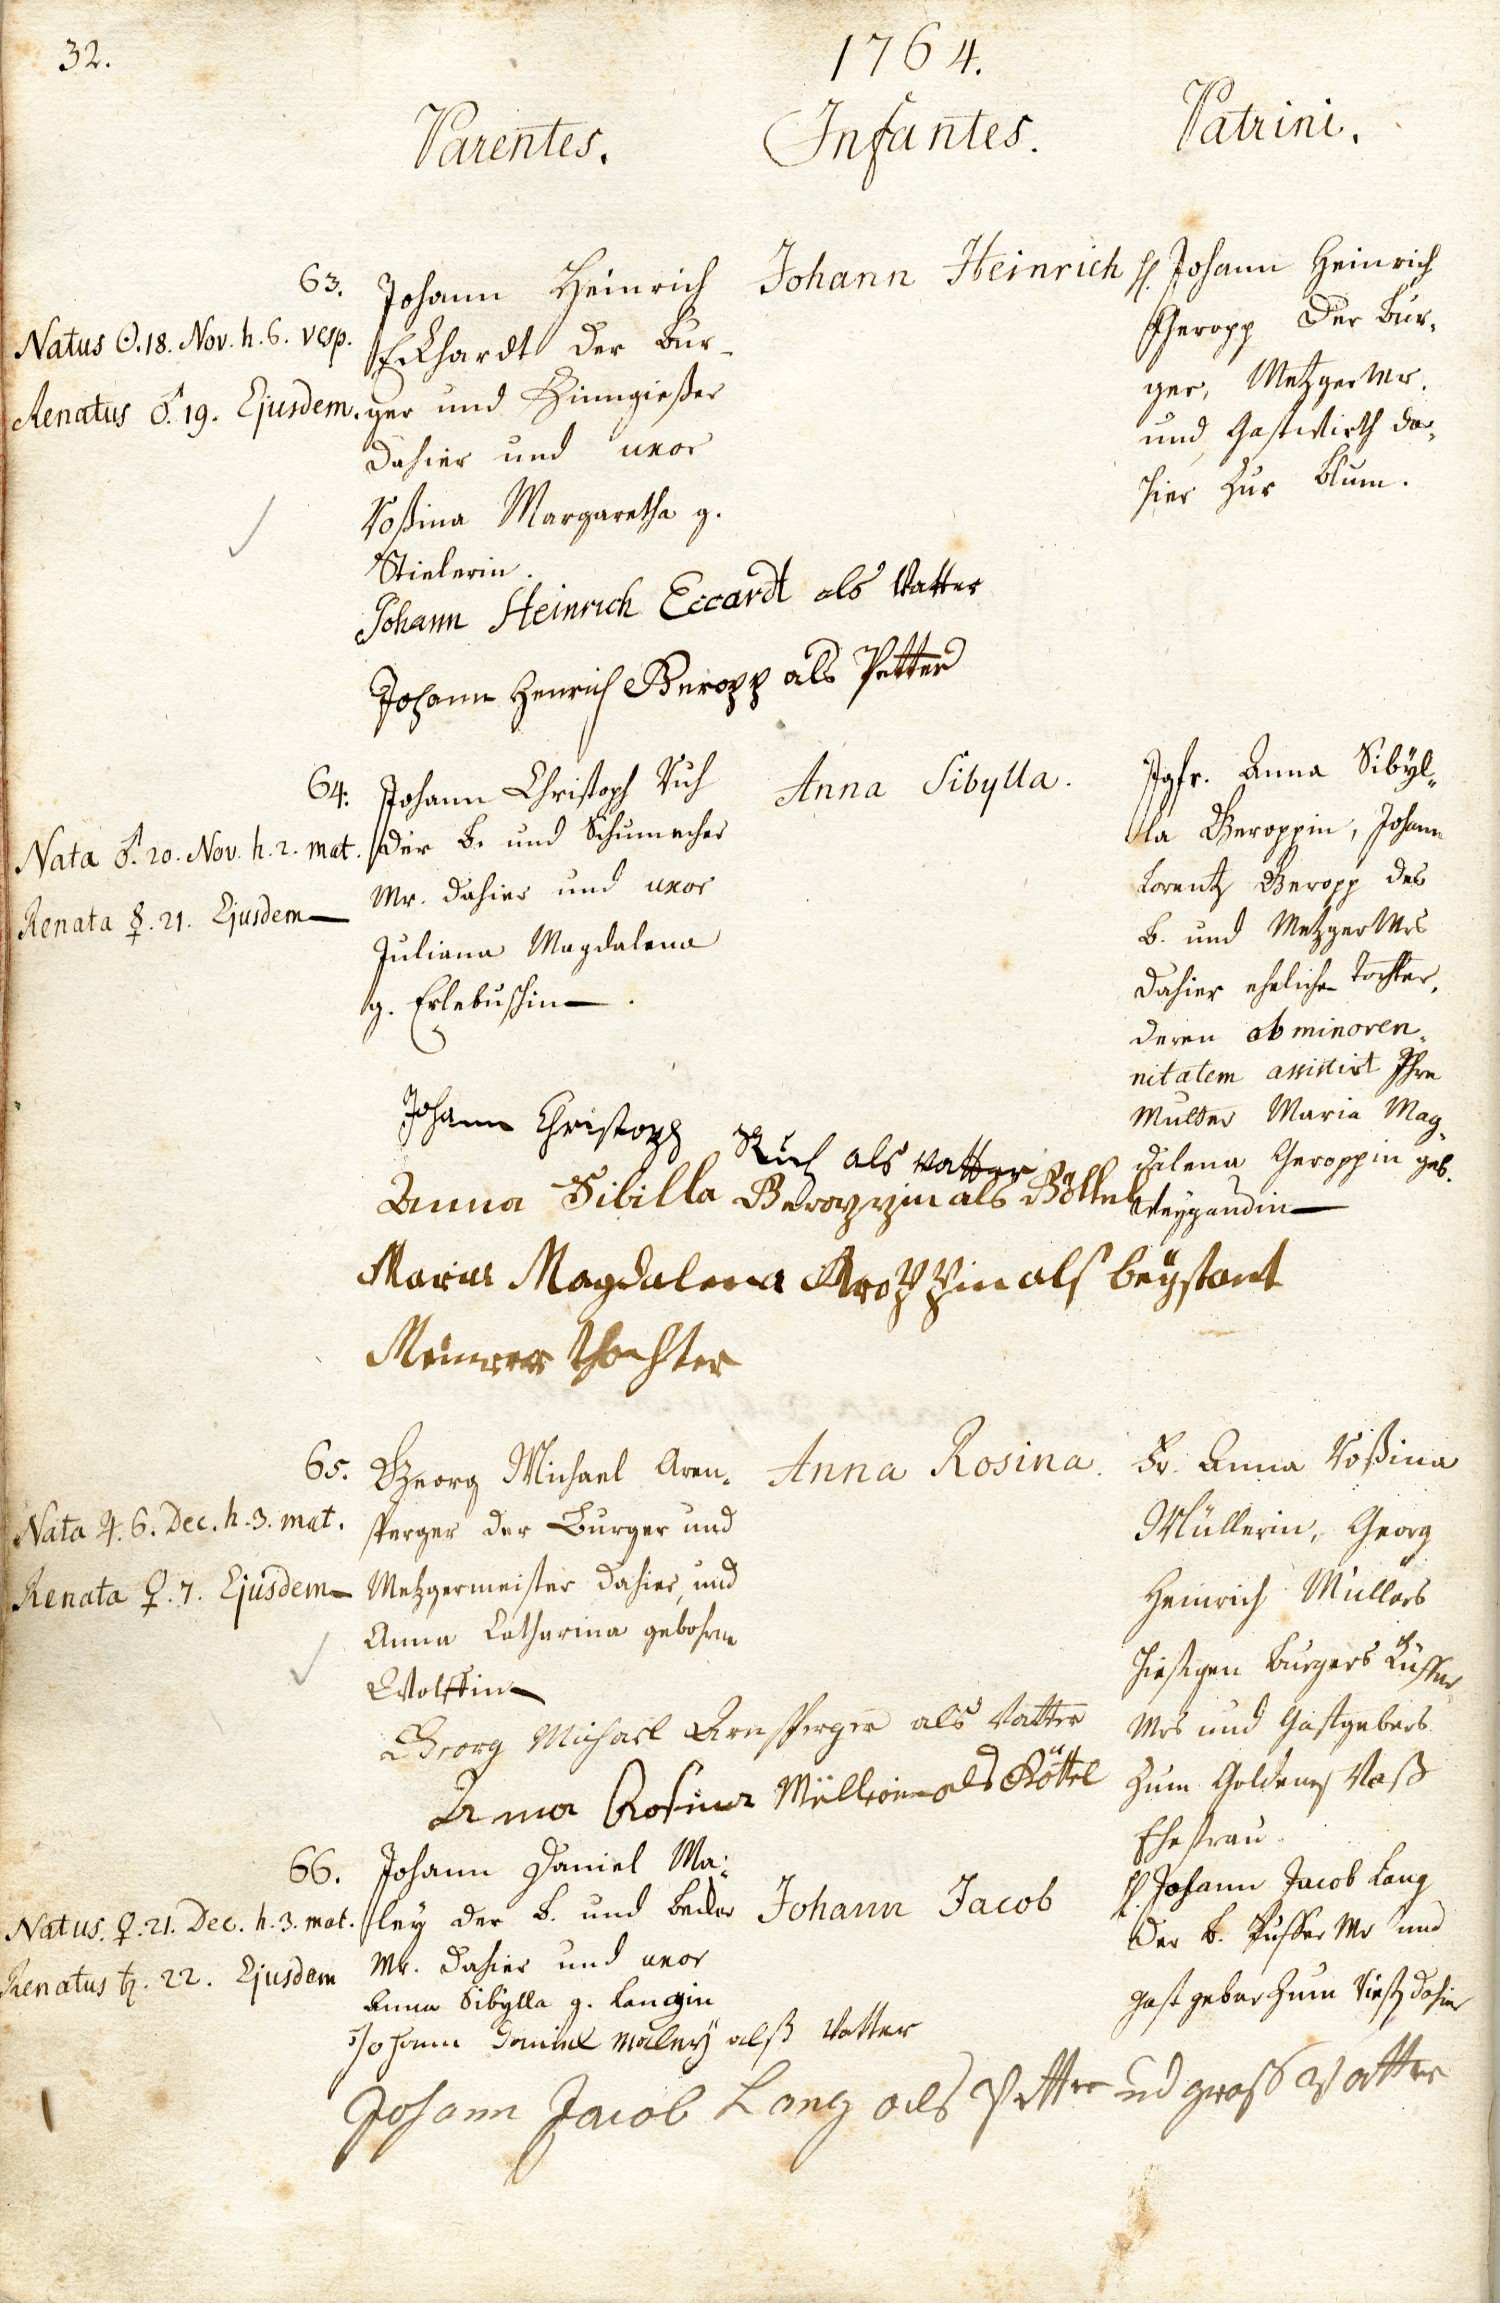 32.
1764.
Parentes.
Infantes.
Patrini.
63.
Natus ☉. 18. Nov. h. 6. vesp.
Renatus ♂. 19. Ejusdem.
Johann Heinrich
Eckhardt der Bur-
ger und Zinngießer
dahier und uxor
Roßina Margaretha g.
Stielerin.
Johann Heinrich
H. Johann Heinrich
Gheropp der Bur-
ger, Metzger Mr.
und Gastwirth da-
hier zur Blum.
Johann Heinrich Eccardt als Vatter
Johann Henrich Geropp als Petter
64.
Nata ♂. 20. Nov. h. 2. mat.
Renata ☿. 21. Ejusdem
Johann Christoph Ruh
der B. und Schumacher
Mr. dahier und uxor
Juliana Magdalena
g. Erlebußhin.
Anna Sibylla.
Jgfr. Anna Sibyl-
la Geroppin, Johann
Lorentz Geropp des
B. und Metzger Mrs
dahier eheliche Tochter,
deren ob minoren-
nitatem assistirt Ihre
Mutter Maria Mag-
dalena Geroppin geb.
Weygandin
Johann Christoph Ruh als vatter
Anna Sibilla Geroppin als Göttel
Maria Magdalena Geroppin als beystant
Meiner Thochter
65.
Nata ♃. 6. Dec. h. 3. mat.
Renata ♀. 7. Ejusdem
Georg Michael Aren-
sperger der Burger und
Metzgermeister dahier, und
Anna Catharina gebohrne
Wolffin
Anna Rosina.
Fr. Anna Roßina
Müllerin, Georg
Heinrich Müllers
hiesigen Burgers Küffer
Mrs und Gastgebers
zum Goldenen Vaß
Ehefrau.
Georg Michael Arnsperger als Vatter
Anna Rosina Müllerin als Göttel
66.
Natus. ♀. 21. Dec. h. 3. mat.
Renatus ♄. 22. Ejusdem
Johann Daniel Ma-
ley der B. und Becker
Mr. dahier und uxor
Anna Sibylla g. Langin
Johann Jacob
H. Johann Jacob Lang
der B. Küffer Mr und
Gastgeber zum dahier
Johann Daniel maley alß Vatter
Johann Jacob Lang als Petter und groß Vatter